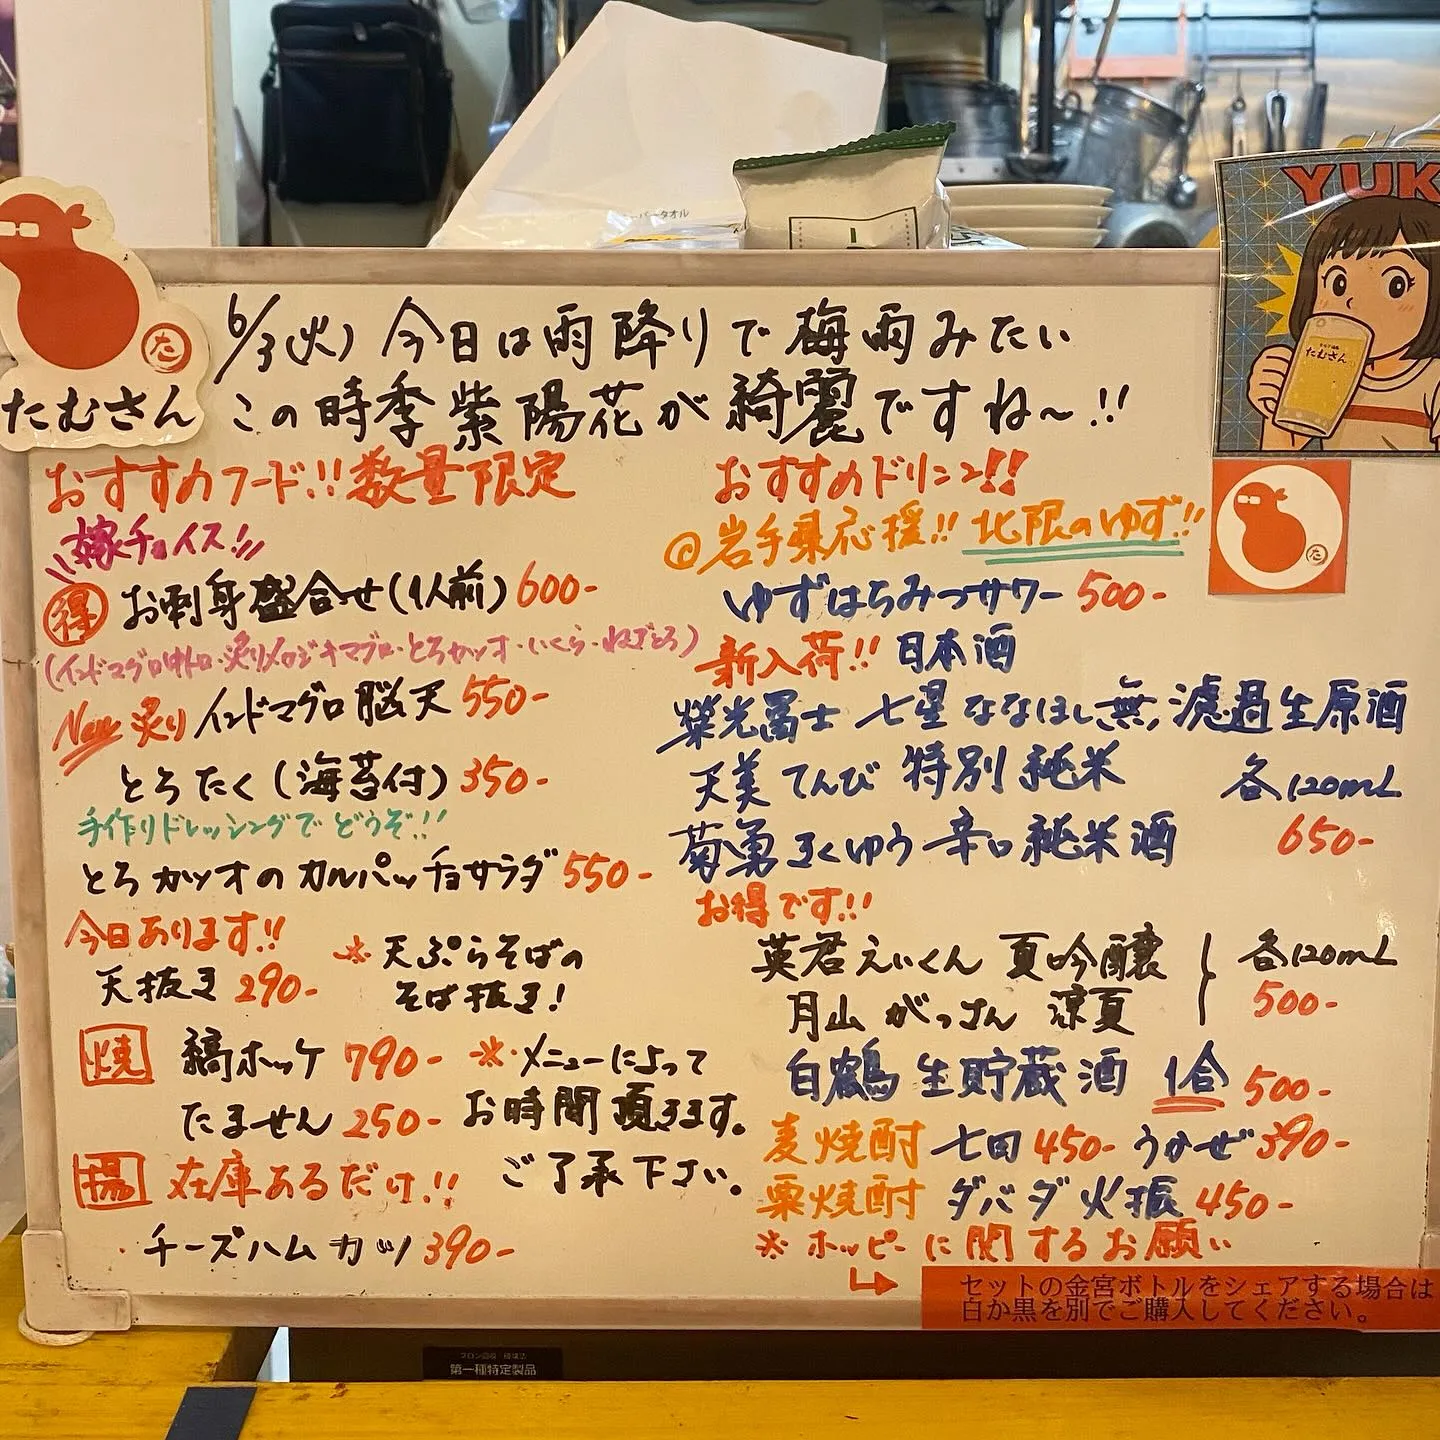 スーパータオル
YUK
たむさん
た
たむさん
6/3(火) 今日は雨降りで梅雨みたい
この時季紫陽花が綺麗ですね〜!!
おすすめフード!!数量限定
嫁チョイス!!
得 お刺身盛合せ(1人前) 600-
(インドマグロ中トロ・炙りメカジキマグロ・とろカツオ・いくら・ねぎとろ)
New 炙り インドマグロ脳天 550-
とろたく(海苔付) 350-
手作りドレッシングでどうぞ!!
とろカツオのカルパッチョサラダ 550-
今日あります!!
天抜き 290-
※天ぷらそばの
そば抜き!
焼 縞ホッケ 790-
たません 250-
※メニューによって
お時間頂きます。
ご了承下さい。
揚 在庫あるだけ!!
・チーズハムカツ 390-
おすすめドリンン!!
◎岩手県応援!! 北限のゆず!!
ゆずはちみつサワー 500-
新入荷!! 日本酒
榮光冨士 七星 ななほし 無濾過生原酒
天美 てんび 特別純米
菊勇 きくゆう 辛口純米酒
各120mL
650-
お得です!!
英君 えいくん 夏吟醸
月山 がっさん 涼夏
各120mL
500-
白鶴 生貯蔵酒 1合 500-
麦焼酎 七田 450- うかぜ 390-
栗焼酎 ダバダ火振 450-
※ホッピーに関するお願い
セットの金宮ボトルをシェアする場合は
白か黒を別でご購入してください。
た
フロン回収 破壊法
第一種特定製品